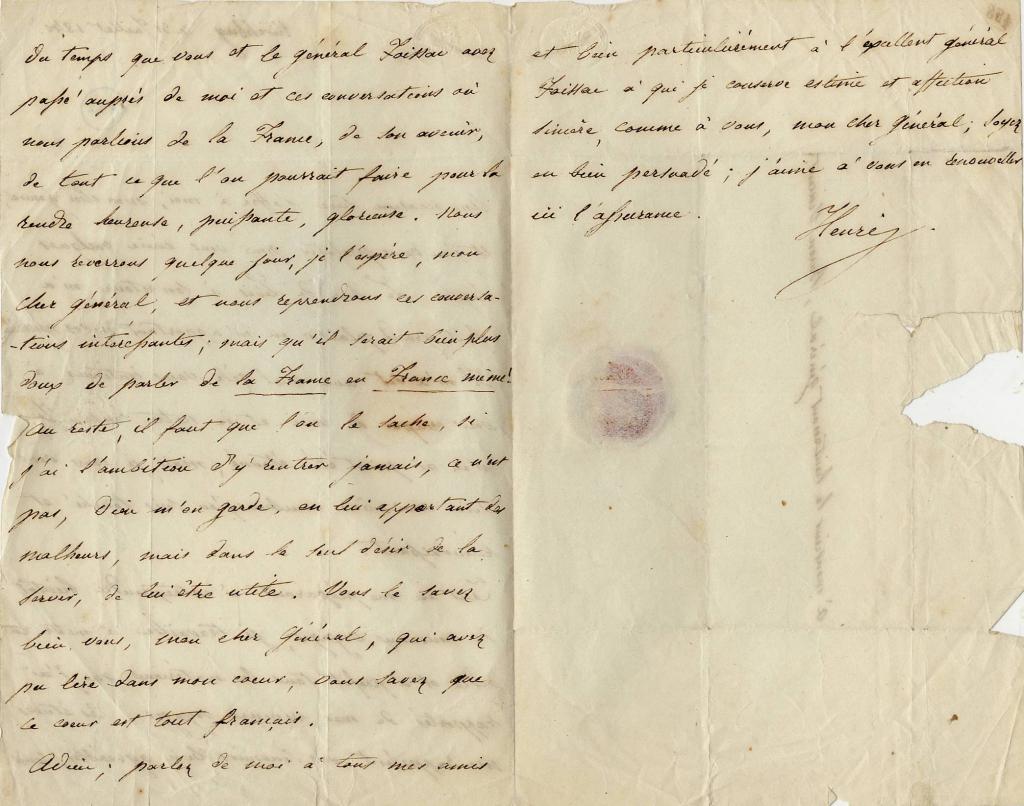 du temps que vous et le général Foissac avez
passé auprès de moi et ces conversations où
nous parlions de la France, de son avenir,
de tout ce que l'on pourrait faire pour la
rendre heureuse, puissante, glorieuse. Nous
nous reverrons quelque jour, je l'espère, mon
cher général, et nous reprendrons ces conversa-
-tions intéressantes; mais qu'il serait bien plus
doux de parler de la France en France même!
Au reste, il faut que l'on le sache, si
j'ai l'ambition d'y rentrer jamais, ce n'est
pas, Dieu m'en garde, en lui apportant des
malheurs, mais dans le seul désir de la
servir, de lui être utile. Vous le savez
bien vous, mon cher Général, qui avez
pu lire dans mon coeur, vous savez que
ce coeur est tout français.
Adieu; parlez de moi à tous mes amis
et bien particulièrement à l'excellent général
Foissac à qui je conserve estime et affection
sincère, comme à vous, mon cher Général; soyez
en bien persuadé; j'aime à vous en renouveller
ici l'assurance.
Henri